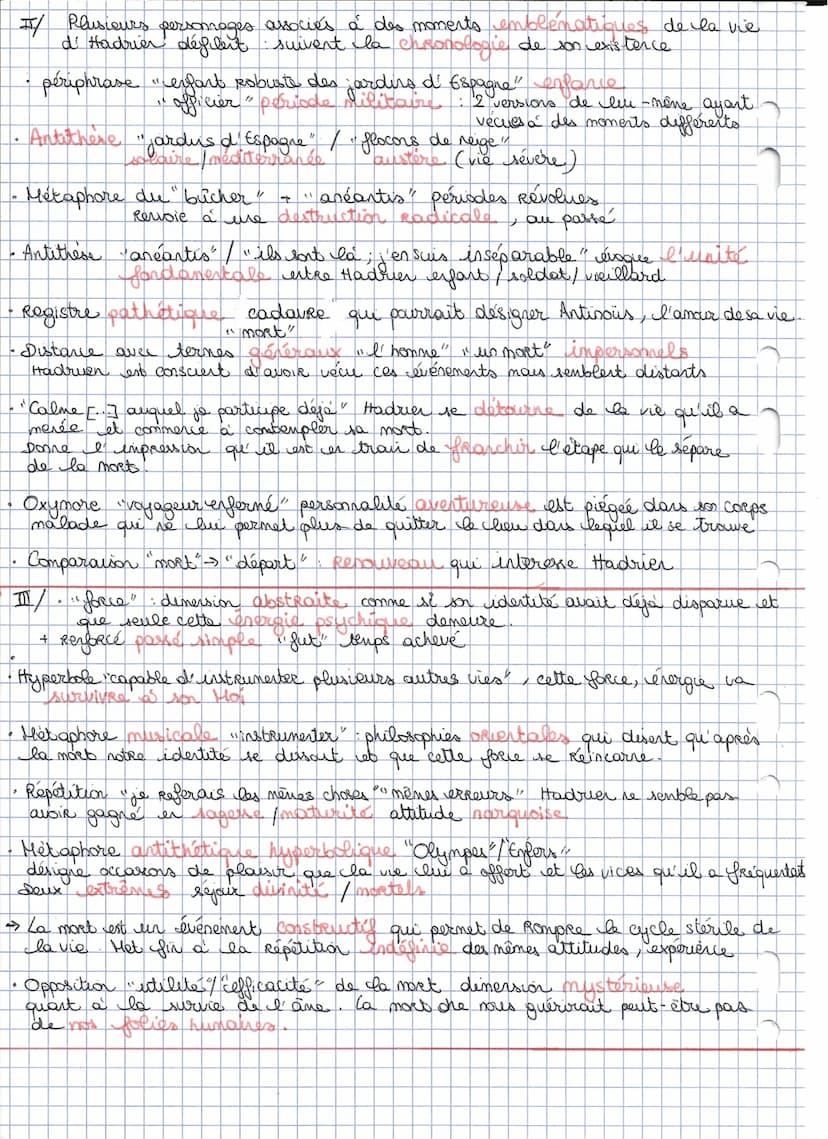 II/ Plusieurs personnages associés à des moments emblématiques de la vie
d'Hadrien défilent : suivent la chronologie de son existence
. périphrase "enfant robuste des jardins d'Espagne" enfance
"officier" période militaire : 2 versions de lui-même ayant
vécues à des moments différents
. Antithèse "jardins d'Espagne" / "flocons de neige"
solaire/méditerranée austère (vie sévère)
. Métaphore du "bûcher" + "anéantis" périodes Révolues
Renvoie à une destruction radicale, au passé
. Antithèse "anéantis" / "ils sont là ; j'en suis inséparable" évoque l'unité
fondamentale entre Hadrien enfant / soldat / vieillard
. Registre pathétique cadavre qui pourrait désigner Antinoüs, l'amour de sa vie.
"mort"
. Distance avec termes généraux "l'homme" "un mort" impersonnels
Hadrien est conscient d'avoir vécu ces événements mais semblent distants
. "Calme [...] auquel je participe déjà" Hadrien se détourne de la vie qu'il a
menée et commence à contempler sa mort.
Donne l'impression qu'il est en train de franchir l'étape qui le sépare
de la mort.
. Oxymore "voyageur enfermé" personnalité aventureuse est piégée dans son corps
malade qui ne lui permet plus de quitter le lieu dans lequel il se trouve
. Comparaison "mort" → "départ" : Renouveau qui intéresse Hadrien
III/ . "force" : dimension abstraite comme si son identité avait déjà disparue et
que seule cette énergie psychique demeure.
+ Renforcé passé simple "fut" temps achevé
. Hyperbole "capable d'instrumenter plusieurs autres vies", cette force, énergie va
survivre à son Moi
. Métaphore musicale "instrumenter" : philosophies orientales qui disent qu'après
la mort notre identité se dissout et que cette force se Réincarne.
. Répétition "je Referais les mêmes choses" "mêmes erreurs" Hadrien ne semble pas
avoir gagné en sagesse / maturité attitude narquoise
. Métaphore antithétique hyperbolique "Olympes" / "Enfers"
désigne occasions de plaisir que la vie lui a offert et les vices qu'il a fréquentés
Deux extrêmes séjour divinité / mortels
→ La mort est un événement constructif qui permet de Rompre le cycle stérile de
la vie. Met fin à la Répétition indéfinie des mêmes attitudes, expérience
. Opposition "utilité" / "efficacité" de la mort dimension mystérieuse
quant à la survie de l'âme. La mort ne nous guérirait peut-être pas
de nos folies humaines.